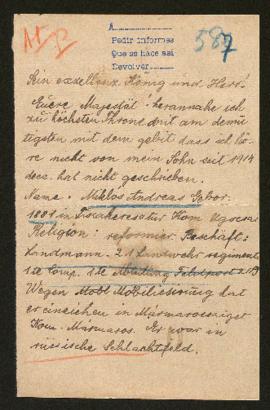 M/B
A
Pedir informes
Que se hace así
Devolver
587
Sein exzellenz König und Herr!
Euere Majestät herannahe ich
zu höchsten Thron dort am demü
tigsten mit dem gebit dass ich hö
re nicht von mein Sohn seit 1914
dez. hat nicht geschrieben.
Name. Miklos Andreas Gabor.
1881 in Kom Ugocsa
Religion: reformier. Beschäft:
Landmann. Landwehr regiment
1te Comp. 1te Feldpost
Wegen Mobilisierung hat
er einziehen in Marmarossziget
Kom. Marmaros. Er war in
rusische Schlachtfeld.